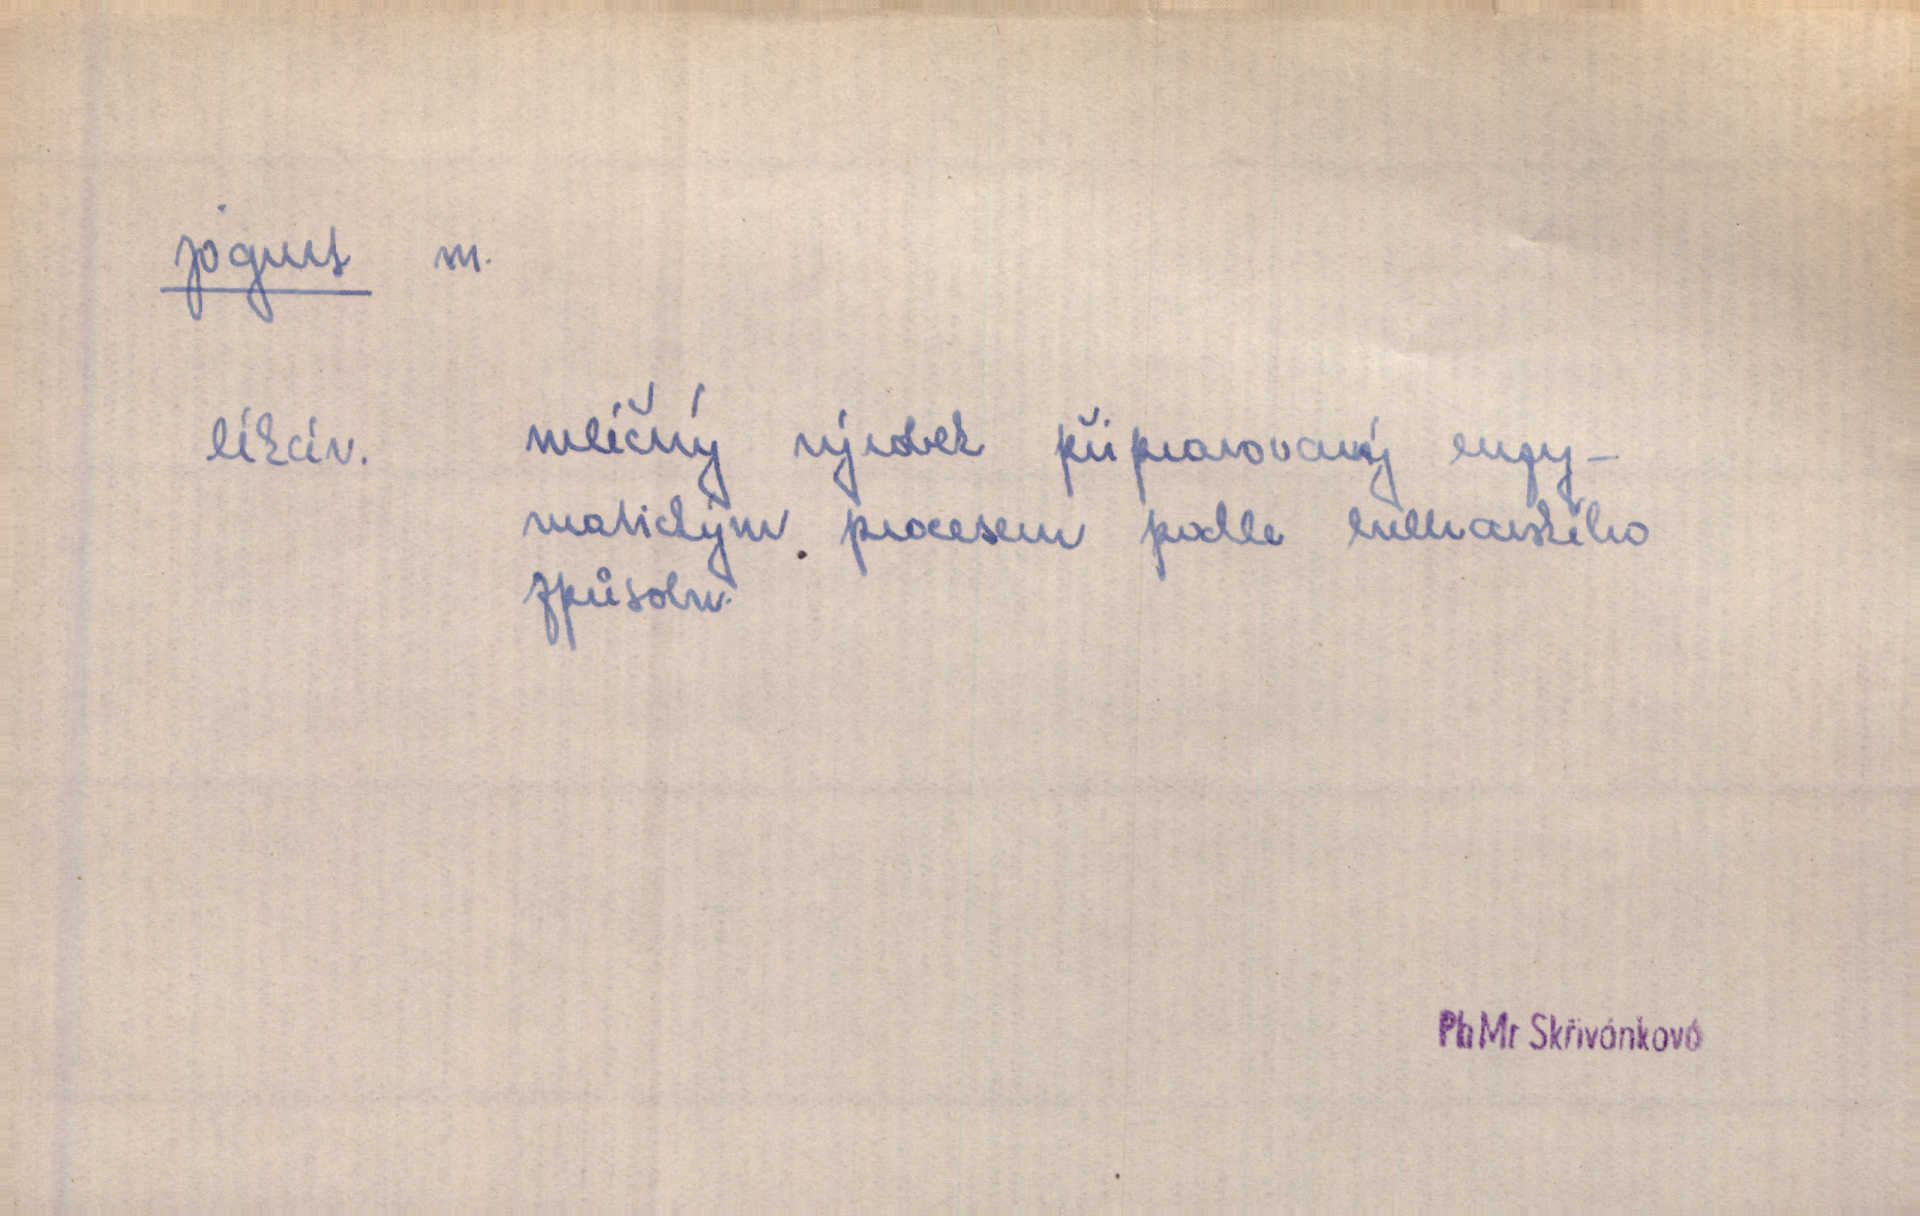 jogurt m.
lékár. mléčný výrobek připravovaný enzy-
matickým procesem podle bulharského
způsobu.
PhMr Skřivánková